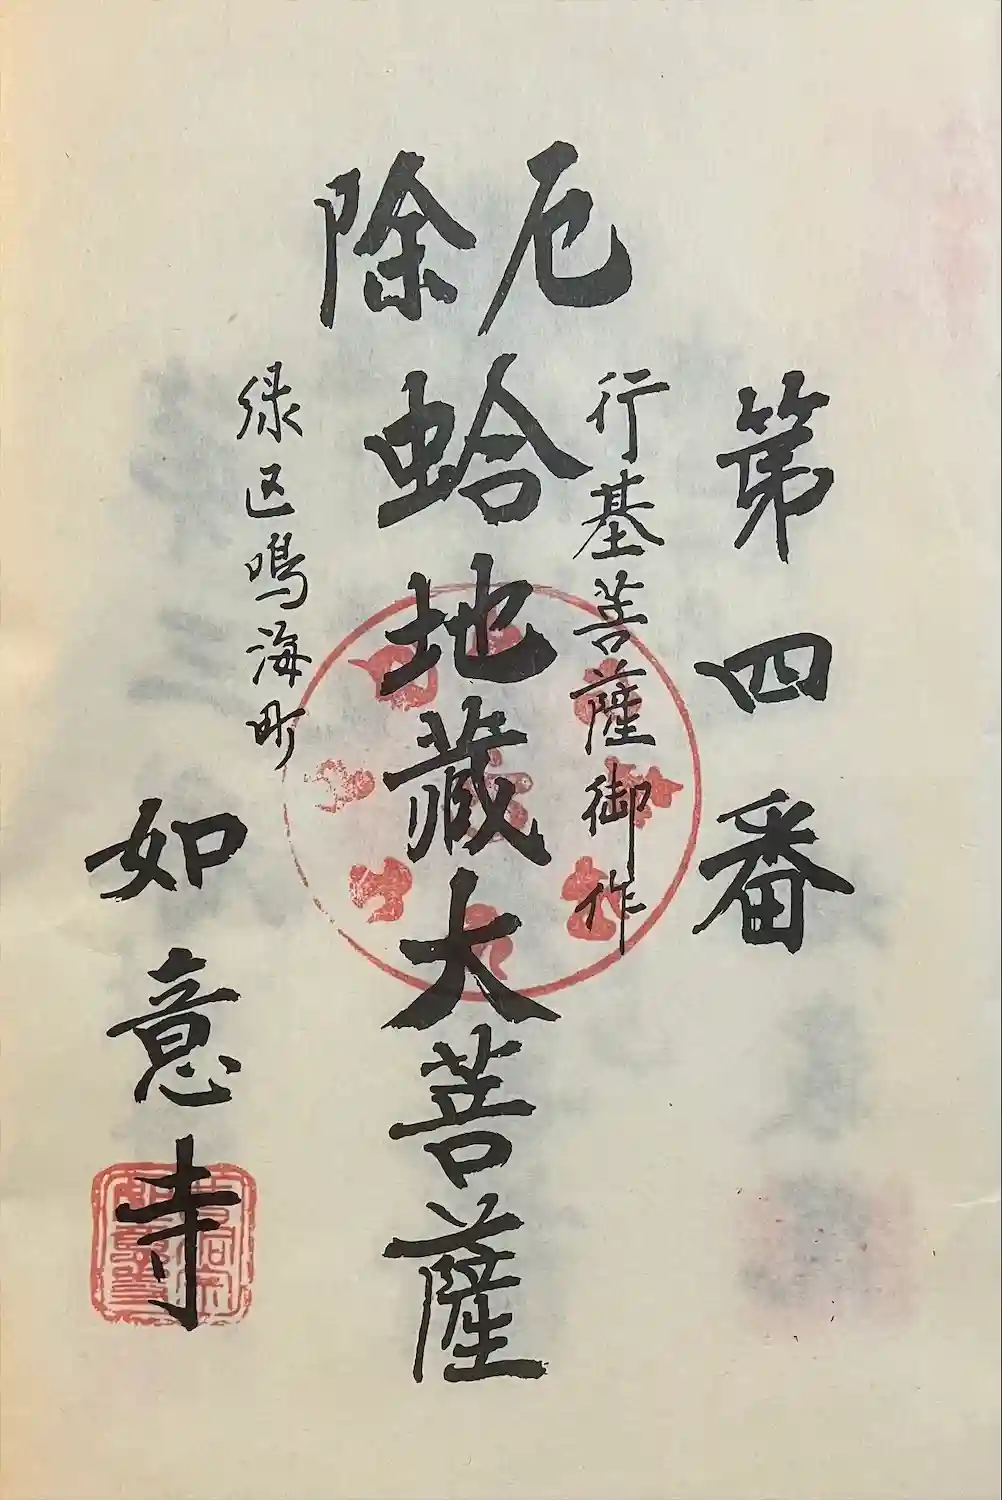 第四番
行基菩薩御作
厄除
蛤地蔵大菩薩
緑区鳴海町
如意寺